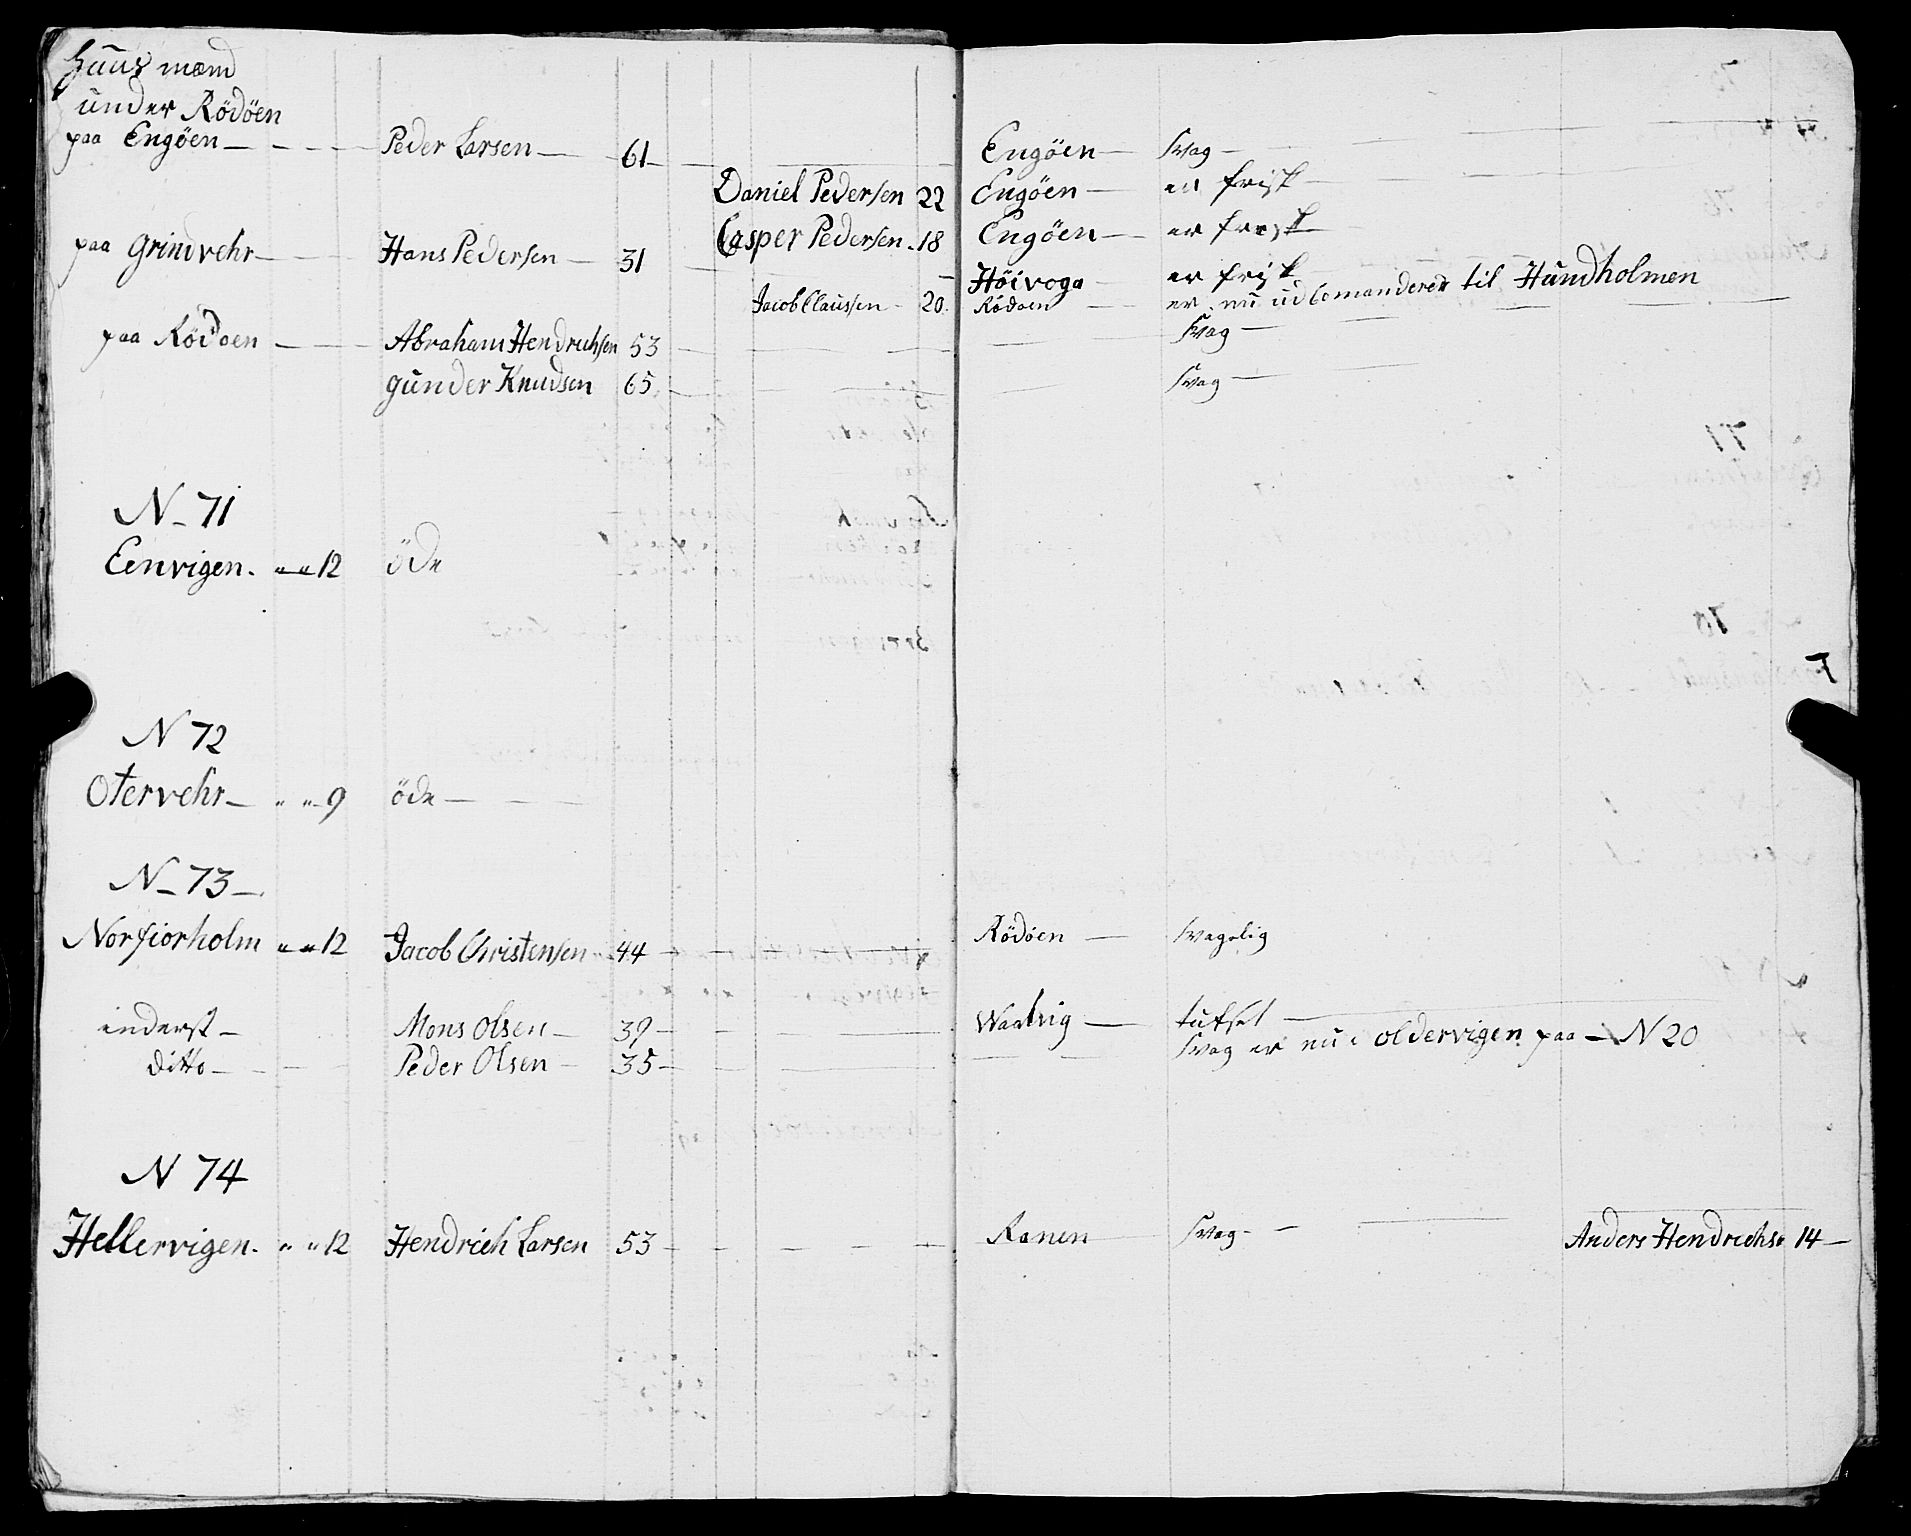 Huus mænd
under Rödöen
paa Engöen — Peder Larsen — 61 — Engöen — svag —
Daniel Pedersen 22 Engöen — er frisk —
Casper Pedersen 18 Engöen — er frisk —
paa Grindvehr — Hans Pedersen — 31 — Höivoga er frisk
Jacob Claussen 20 Rödoen er nu udcomanderer til Hundholmen
paa Rödoen — Abraham Hendrichsen 53 — svag —
gunder Knudsen 65 — svag —
N 71
Eenvigen „ „ 12 öde
N 72
Otervehr „ „ 9 öde —
N 73
Norfiorholm „ „ 12 Jacob Christensen 44 — Rödöen — svagelig
inderst — Mons Olsen — 39 —
ditto — Peder Olsen — 35 — svag er nu i oldervigen paa N 20
N 74
Hellervigen „ „ 12 Hendrich Larsen 53 — Ranen svag — Anders Hendrichs 14 —